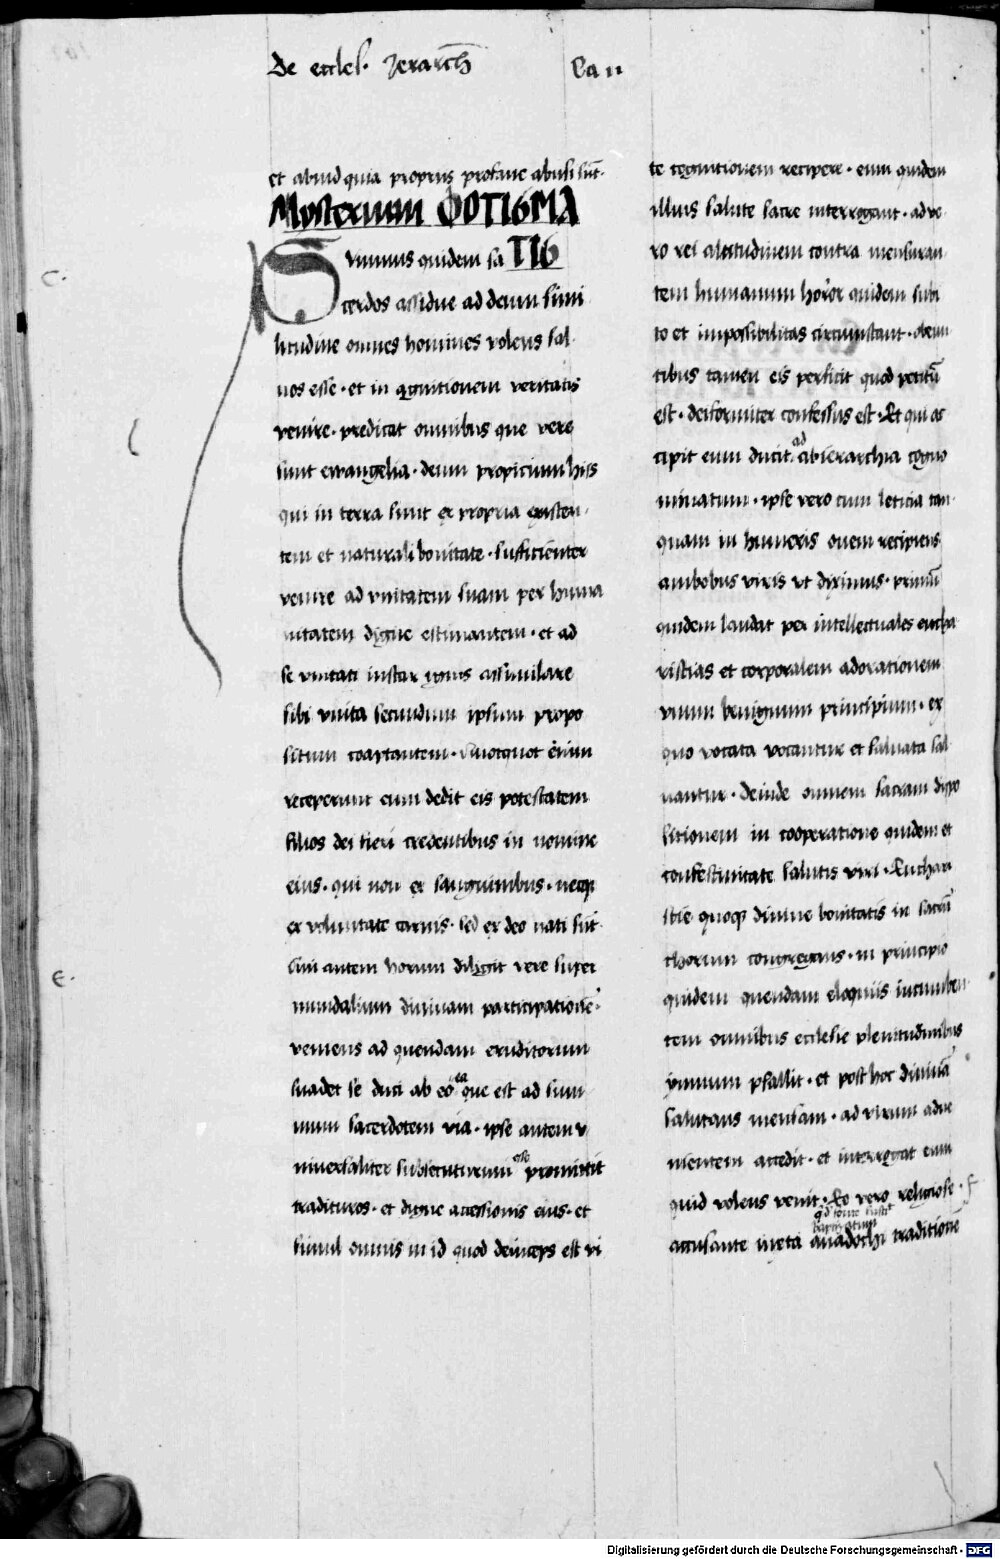 De eccles. Jerarch Ca ii
et aliud quia propriis profane abusi sūt.
Misterium ΦOTISMA
TIS
Summus quidem sa
cerdos assidue ad deum simi
litudine omnes homines volens sal
uos esse · et in agnitionem veritatis
venire · predicat omnibus que vere
sunt ewangelia · deum propicium hiis
qui in terra sunt ex propria existen
tem et naturali bonitate · sufficienter
venire ad vnitatem suam per huma
nitatem digne estimantem · et ad
se vnitati instar ignis assimilare
sibi vnita secundum ipsum propo
situm coaptantem · Quotquot enim
receperunt eum dedit eis potestatem
filios dei fieri credentibus in nomine
eius · qui non ex sanguinibus · neqȝ
ex voluntate carnis · sed ex deo nati sūt·
Qui autem horum diligit vere super
mundalium diuinam participationē·
veniens ad quendam eruditorum
suadet se duci ab eo ea que est ad sum
mum sacerdotem via · ipse autem v
niuersaliter subsecuturum esse promittit
tradituros · et digne accessionis eius · et
simul omnis in id quod deinceps est vi
te cognitionem recipere · eum quidem
illius salute sacre interrogant · ad ve
ro rei altitudinem contra mensuran
tem humanum horror quidem subi
to et impossibilitas circumstant · oben
tibus tamen eis perficit quod petitū
est · deiformiter confessus est · Et qui ac
cipit eum ducit ad abierarchia cogno
minatum · ipse vero cum leticia tan
quam in humeris ouem recipiens
ambobus viris vt diximus · primū
quidem laudat per intellectuales eucha
ristias et corporalem adorationem
vnum benignum principium · ex
quo vocata vocantur et saluata sal
uantur · deinde omnem sacram dispo
sitionem in cooperatione quidem et
confestiuitate salutis viri · Euchari
stie quoqȝ diuine bonitatis in sacrū
chorum congregans · in principio
quidem quendam eloquiis incumben
tem omnibus ecclesie plenitudinibus
ymnum psallit · et post hoc diuinā
salutans mensam · ad virum adue
nientem accedit · et interrogat eum
quid volens venit · Eo vero religiose ·
accusante iuxta anadochi traditionē
C.
E.
Digitalisierung gefördert durch die Deutsche Forschungsgemeinschaft - DFG